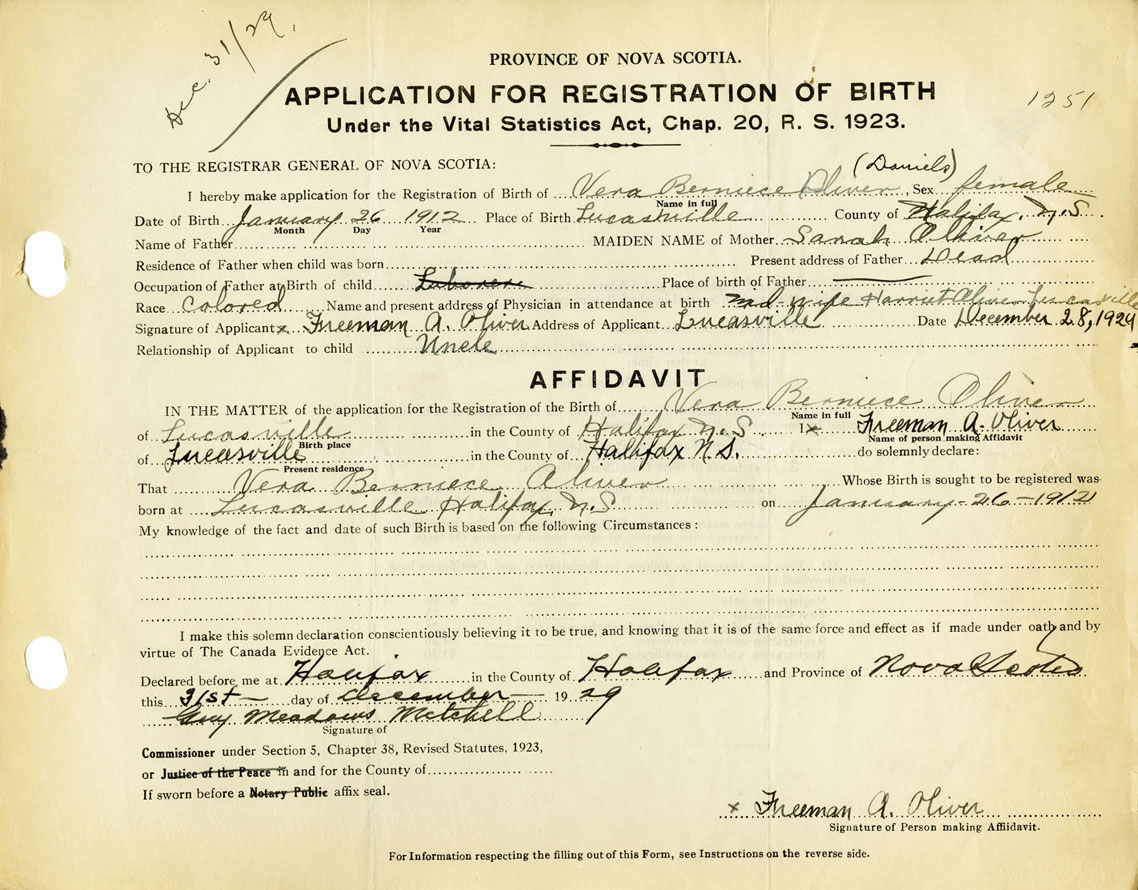 Dec. 31/29.
PROVINCE OF NOVA SCOTIA.
APPLICATION FOR REGISTRATION OF BIRTH
1251
Under the Vital Statistics Act, Chap. 20, R. S. 1923.
TO THE REGISTRAR GENERAL OF NOVA SCOTIA:
(Daniels)
I hereby make application for the Registration of Birth of Vera Berniece Oliver, Sex female
Name in full
Date of Birth January 26 1912 Place of Birth Lucasville County of Halifax, N.S.
Month Day Year
Name of Father MAIDEN NAME of Mother Sarah Oliver
Residence of Father when child was born Present address of Father Dead
Occupation of Father at Birth of child Laborer Place of birth of Father
Race Colored Name and present address of Physician in attendance at birth mid-wife Harriet Oliver Lucasville
Signature of Applicant x Freeman A. Oliver Address of Applicant Lucasville Date December 28, 1929
Relationship of Applicant to child Uncle
AFFIDAVIT
IN THE MATTER of the application for the Registration of the Birth of Vera Berniece Oliver
Name in full
of Lucasville in the County of Halifax N.S. I x Freeman A. Oliver
Birth place Name of person making Affidavit
of Lucasville in the County of Halifax N.S. do solemnly declare:
Present residence
That Vera Berniece Oliver Whose Birth is sought to be registered was
born at Lucasville Halifax N.S on January-26-1912
My knowledge of the fact and date of such Birth is based on the following Circumstances:
I make this solemn declaration conscientiously believing it to be true, and knowing that it is of the same force and effect as if made under oath and by
virtue of The Canada Evidence Act.
Declared before me at Halifax in the County of Halifax and Province of Nova Scotia
this 31st day of December 1929
Guy Meadows Mitchell
Signature of
Commissioner under Section 5, Chapter 38, Revised Statutes, 1923,
or Justice of the Peace in and for the County of
If sworn before a Notary Public affix seal.
x Freeman A. Oliver
Signature of Person making Affidavit.
For Information respecting the filling out of this Form, see Instructions on the reverse side.